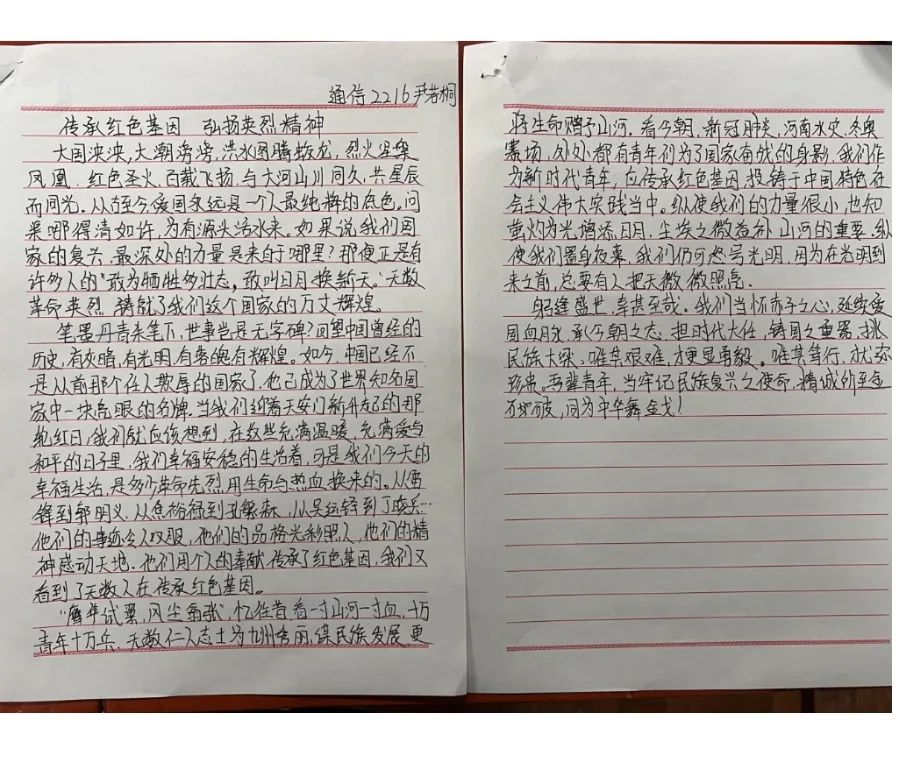 通信2216 尹若桐
传承红色基因 弘扬英烈精神
大国泱泱,大潮滂滂,洪水图腾蛟龙,烈火涅槃
凤凰。红色圣火,百载飞扬,与大河山川同久,共星辰
而同光。从古至今爱国永远是一个人最纯粹的底色。问
渠哪得清如许,为有源头活水来。如果说我们国
家的复兴,最深处的力量是来自于哪里?那便正是有
许多人的“敢为牺牲多壮志,敢叫日月换新天。”无数
革命英烈,铸就了我们这个国家的万丈辉煌。
笔墨丹青未笔下,世事岂是无字碑?回望中国曾经的
历史,有灰暗,有光明,有旁皇有辉煌。如今,中国已经不
是从前那个任人欺辱的国家了,他已成为了世界知名国
家中一块亮眼的名牌。当我们迎着天安门新升起的那
轮红日,我们就应该想到,在这些充满温暖,充满爱与
和平的日子里,我们幸福安稳的生活着,可是我们今天的
幸福生活,是多少革命先烈用生命与热血换来的。从雷
锋到郭明义,从焦裕禄到孔繁森,从吴运铎到丁晓兵……
他们的事迹令人叹服,他们的品格光彩照人,他们的精
神感动天地。他们用个人的奉献传承了红色基因,我们又
看到了无数人在传承红色基因。
“鹰隼试翼,风尘翕张”,忆往昔,看一寸山河一寸血,十万
青年十万兵,无数仁人志士为九州秀丽,保民族发展,更
将生命赠予山河。看今朝,新冠肺炎,河南水灾,冬奥
赛场,处处都有青年们为了国家奋战的身影,我们作
为新时代青年,应传承红色基因,投铸于中国特色社
会主义伟大实践当中。纵使我们的力量很小,也知
萤灼为光增添日月,尘埃之微益补山河的重要。纵
使我们置身夜幕,我们仍可怒号光明,因为在光明到
来之前,总要有人把天微微照亮。
躬逢盛世,幸甚至哉。我们当怀赤子之心,延续爱
国血脉,承今朝之志,担时代大任,铸国之重器,挑
民族大梁。唯其艰难,才更显勇毅。唯其笃行,才弥
珍贵。吾辈青年,当牢记民族复兴之使命,精诚所至金
石被,同为中华舞金戈!